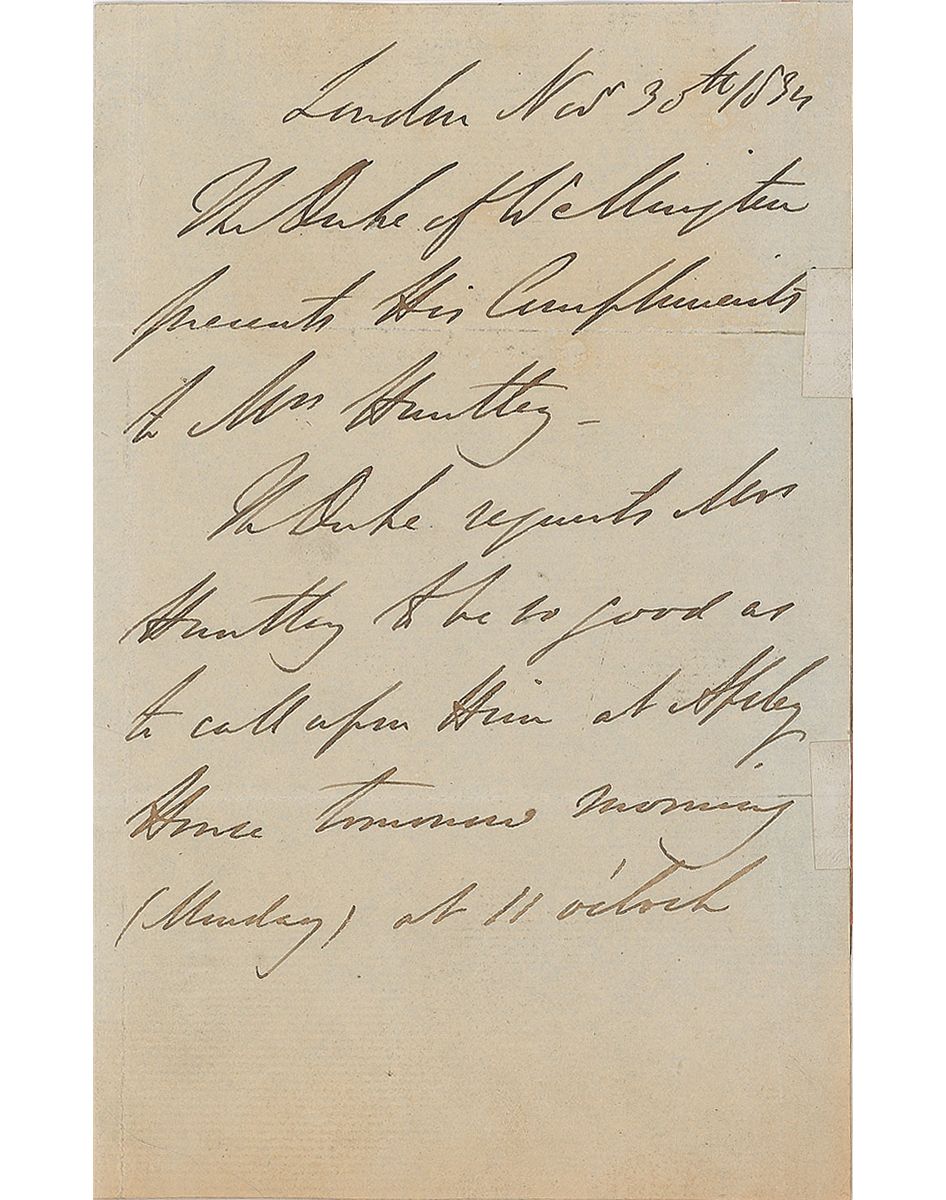 London Nov 30th 1834
The Duke of Wellington
presents His Compliments
to Mrs Huntley –
The Duke requests Mrs
Huntley to be so good as
to call upon Him at Apsley
House tomorrow morning
(Monday) at 11 o'clock